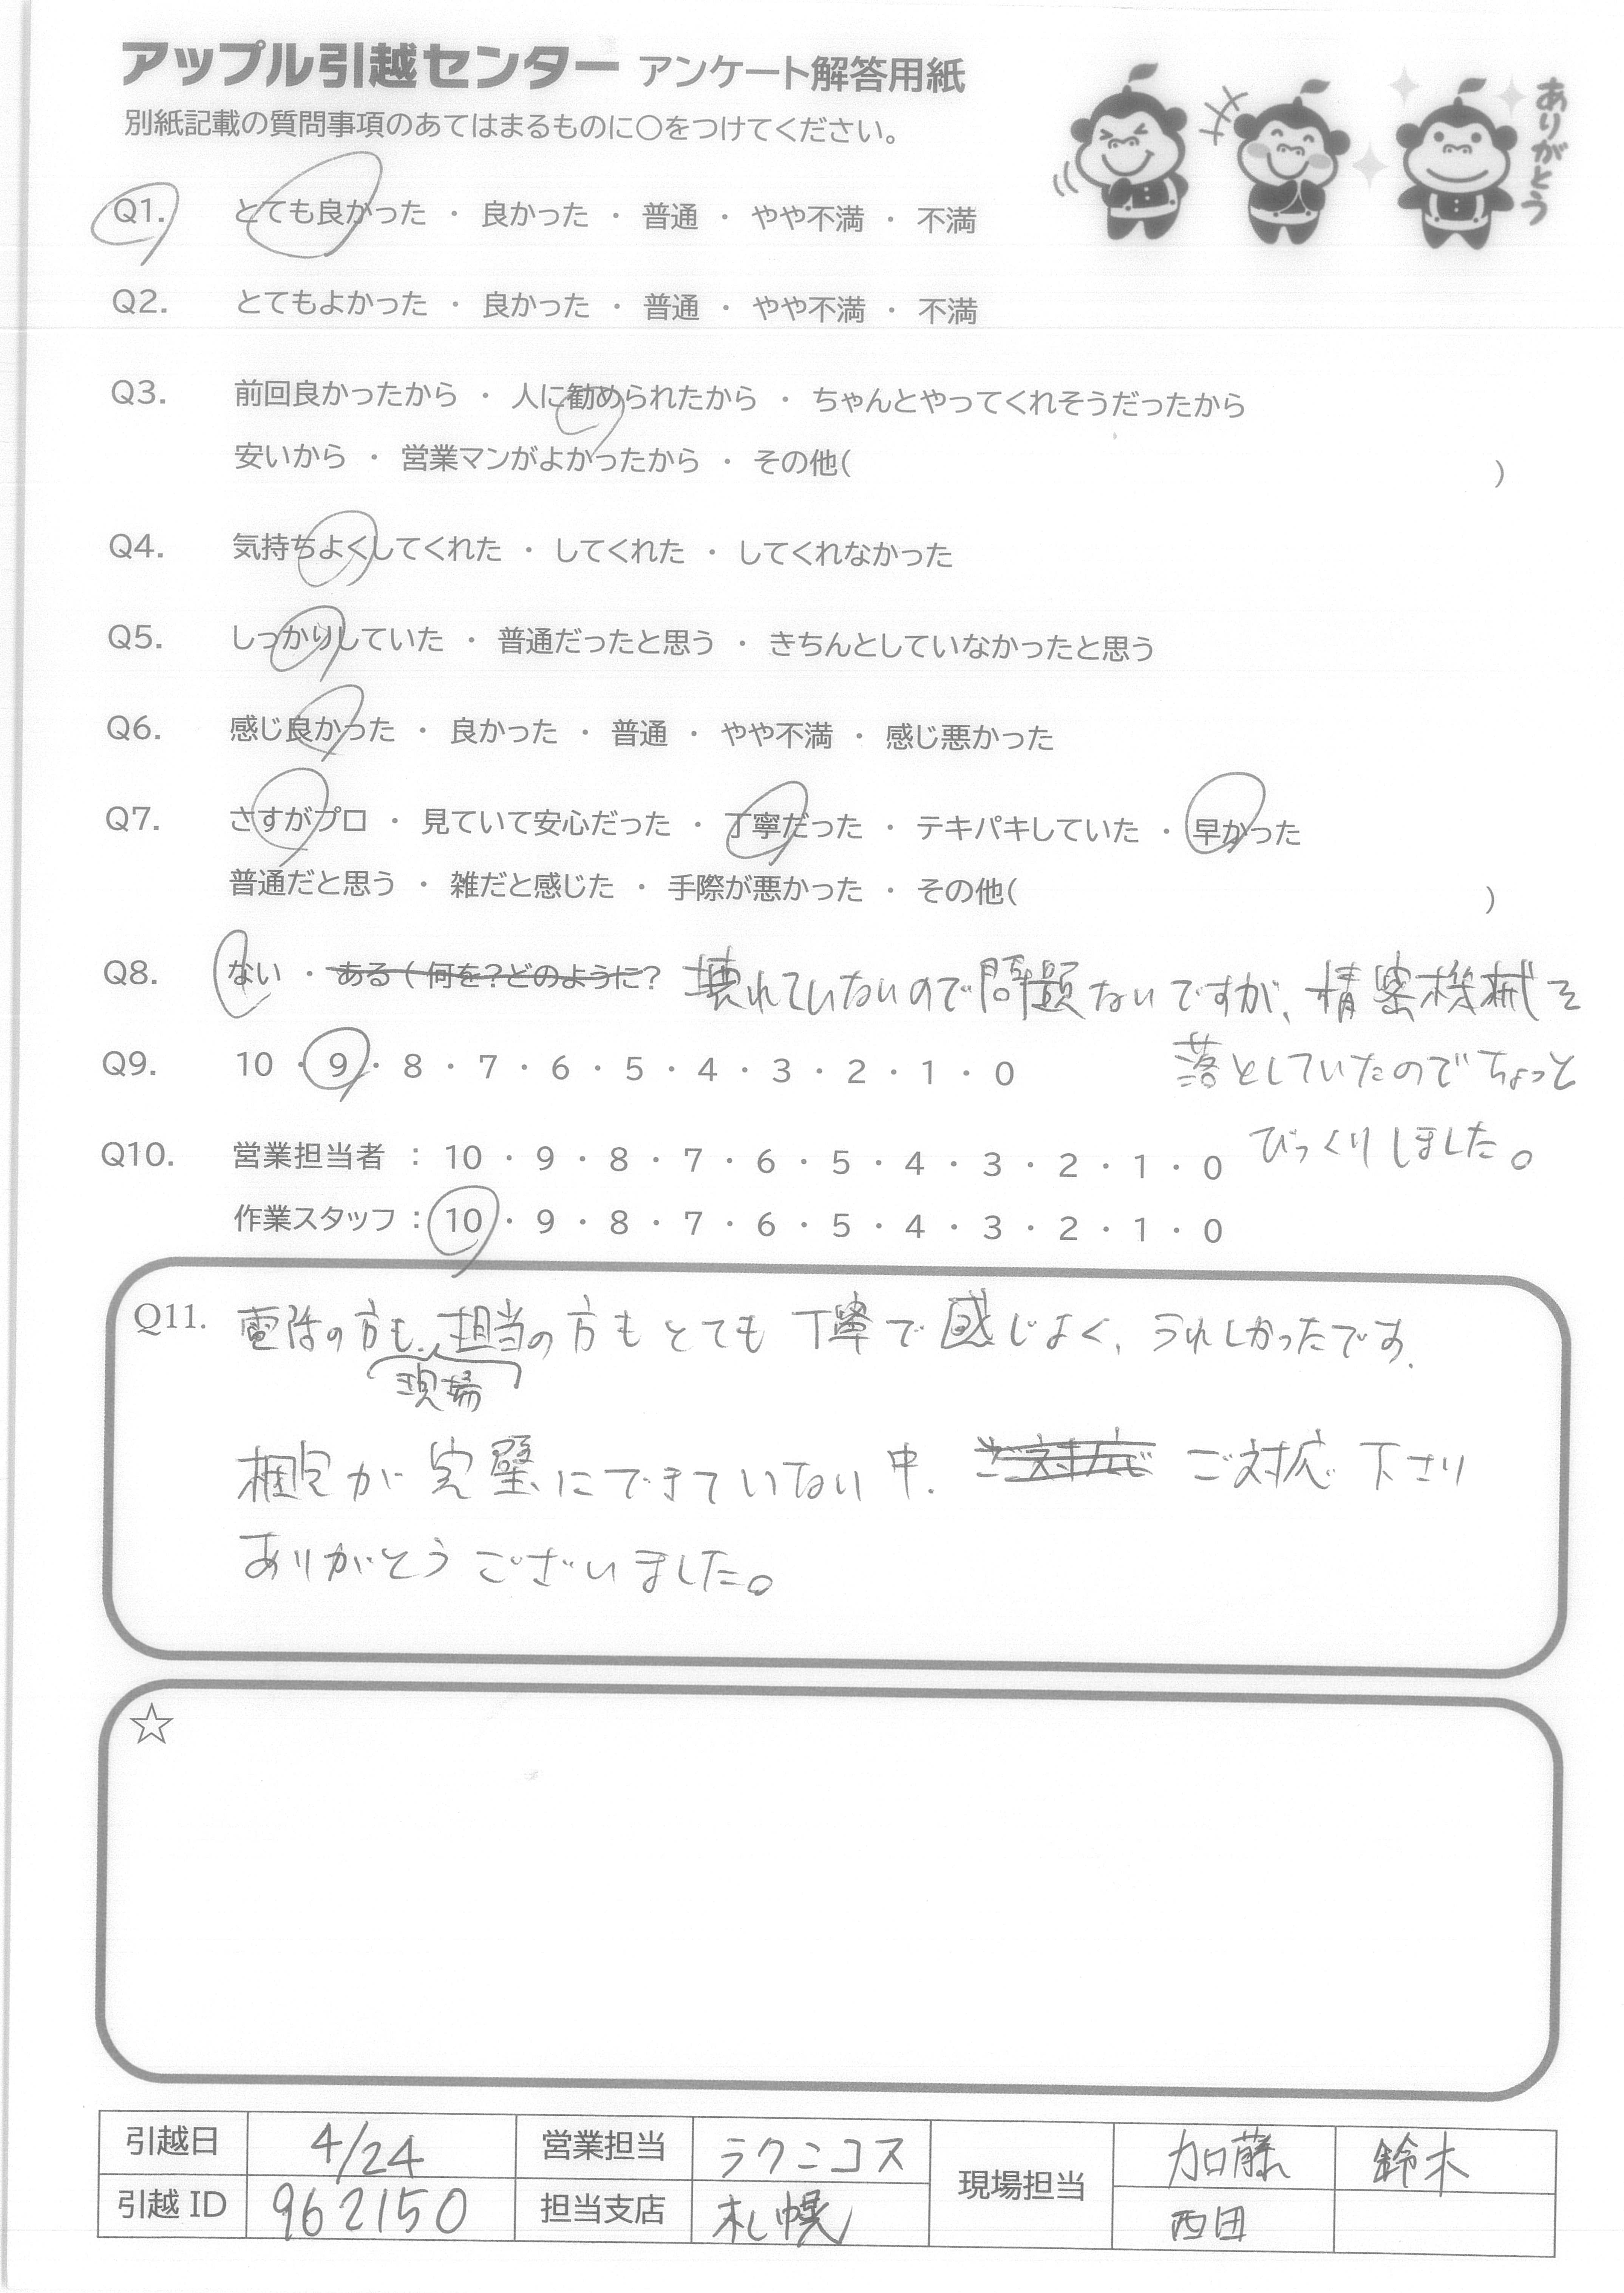 アップル引越センター アンケート解答用紙
ありがとう
別紙記載の質問事項のあてはまるものに○をつけてください。
Q1. とても良かった ・ 良かった ・ 普通 ・ やや不満 ・ 不満
Q2. とてもよかった ・ 良かった ・ 普通 ・ やや不満 ・ 不満
Q3. 前回良かったから ・ 人に勧められたから ・ ちゃんとやってくれそうだったから
安いから ・ 営業マンがよかったから ・ その他( )
Q4. 気持ちよくしてくれた ・ してくれた ・ してくれなかった
Q5. しっかりしていた ・ 普通だったと思う ・ きちんとしていなかったと思う
Q6. 感じ良かった ・ 良かった ・ 普通 ・ やや不満 ・ 感じ悪かった
Q7. さすがプロ ・ 見ていて安心だった ・ 丁寧だった ・ テキパキしていた ・ 早かった
普通だと思う ・ 雑だと感じた ・ 手際が悪かった ・ その他( )
Q8. ない ・ ある(何を?どのように? 壊れていないので問題ないですが、精密機械を
Q9. 10 ・ 9 ・ 8 ・ 7 ・ 6 ・ 5 ・ 4 ・ 3 ・ 2 ・ 1 ・ 0 落としていたのでちょっと
びっくりしました。
Q10. 営業担当者 : 10 ・ 9 ・ 8 ・ 7 ・ 6 ・ 5 ・ 4 ・ 3 ・ 2 ・ 1 ・ 0
作業スタッフ : 10 ・ 9 ・ 8 ・ 7 ・ 6 ・ 5 ・ 4 ・ 3 ・ 2 ・ 1 ・ 0
Q11. 電話の方も、担当の方もとても丁寧で感じよく、うれしかったです.
現場
梱包が完璧にできていない中、ご対応 ご対応下さり
ありがとうございました。
☆
引越日 4/24 営業担当 ラクニコス 現場担当 加藤 鈴木
引越ID 962150 担当支店 札幌 西田